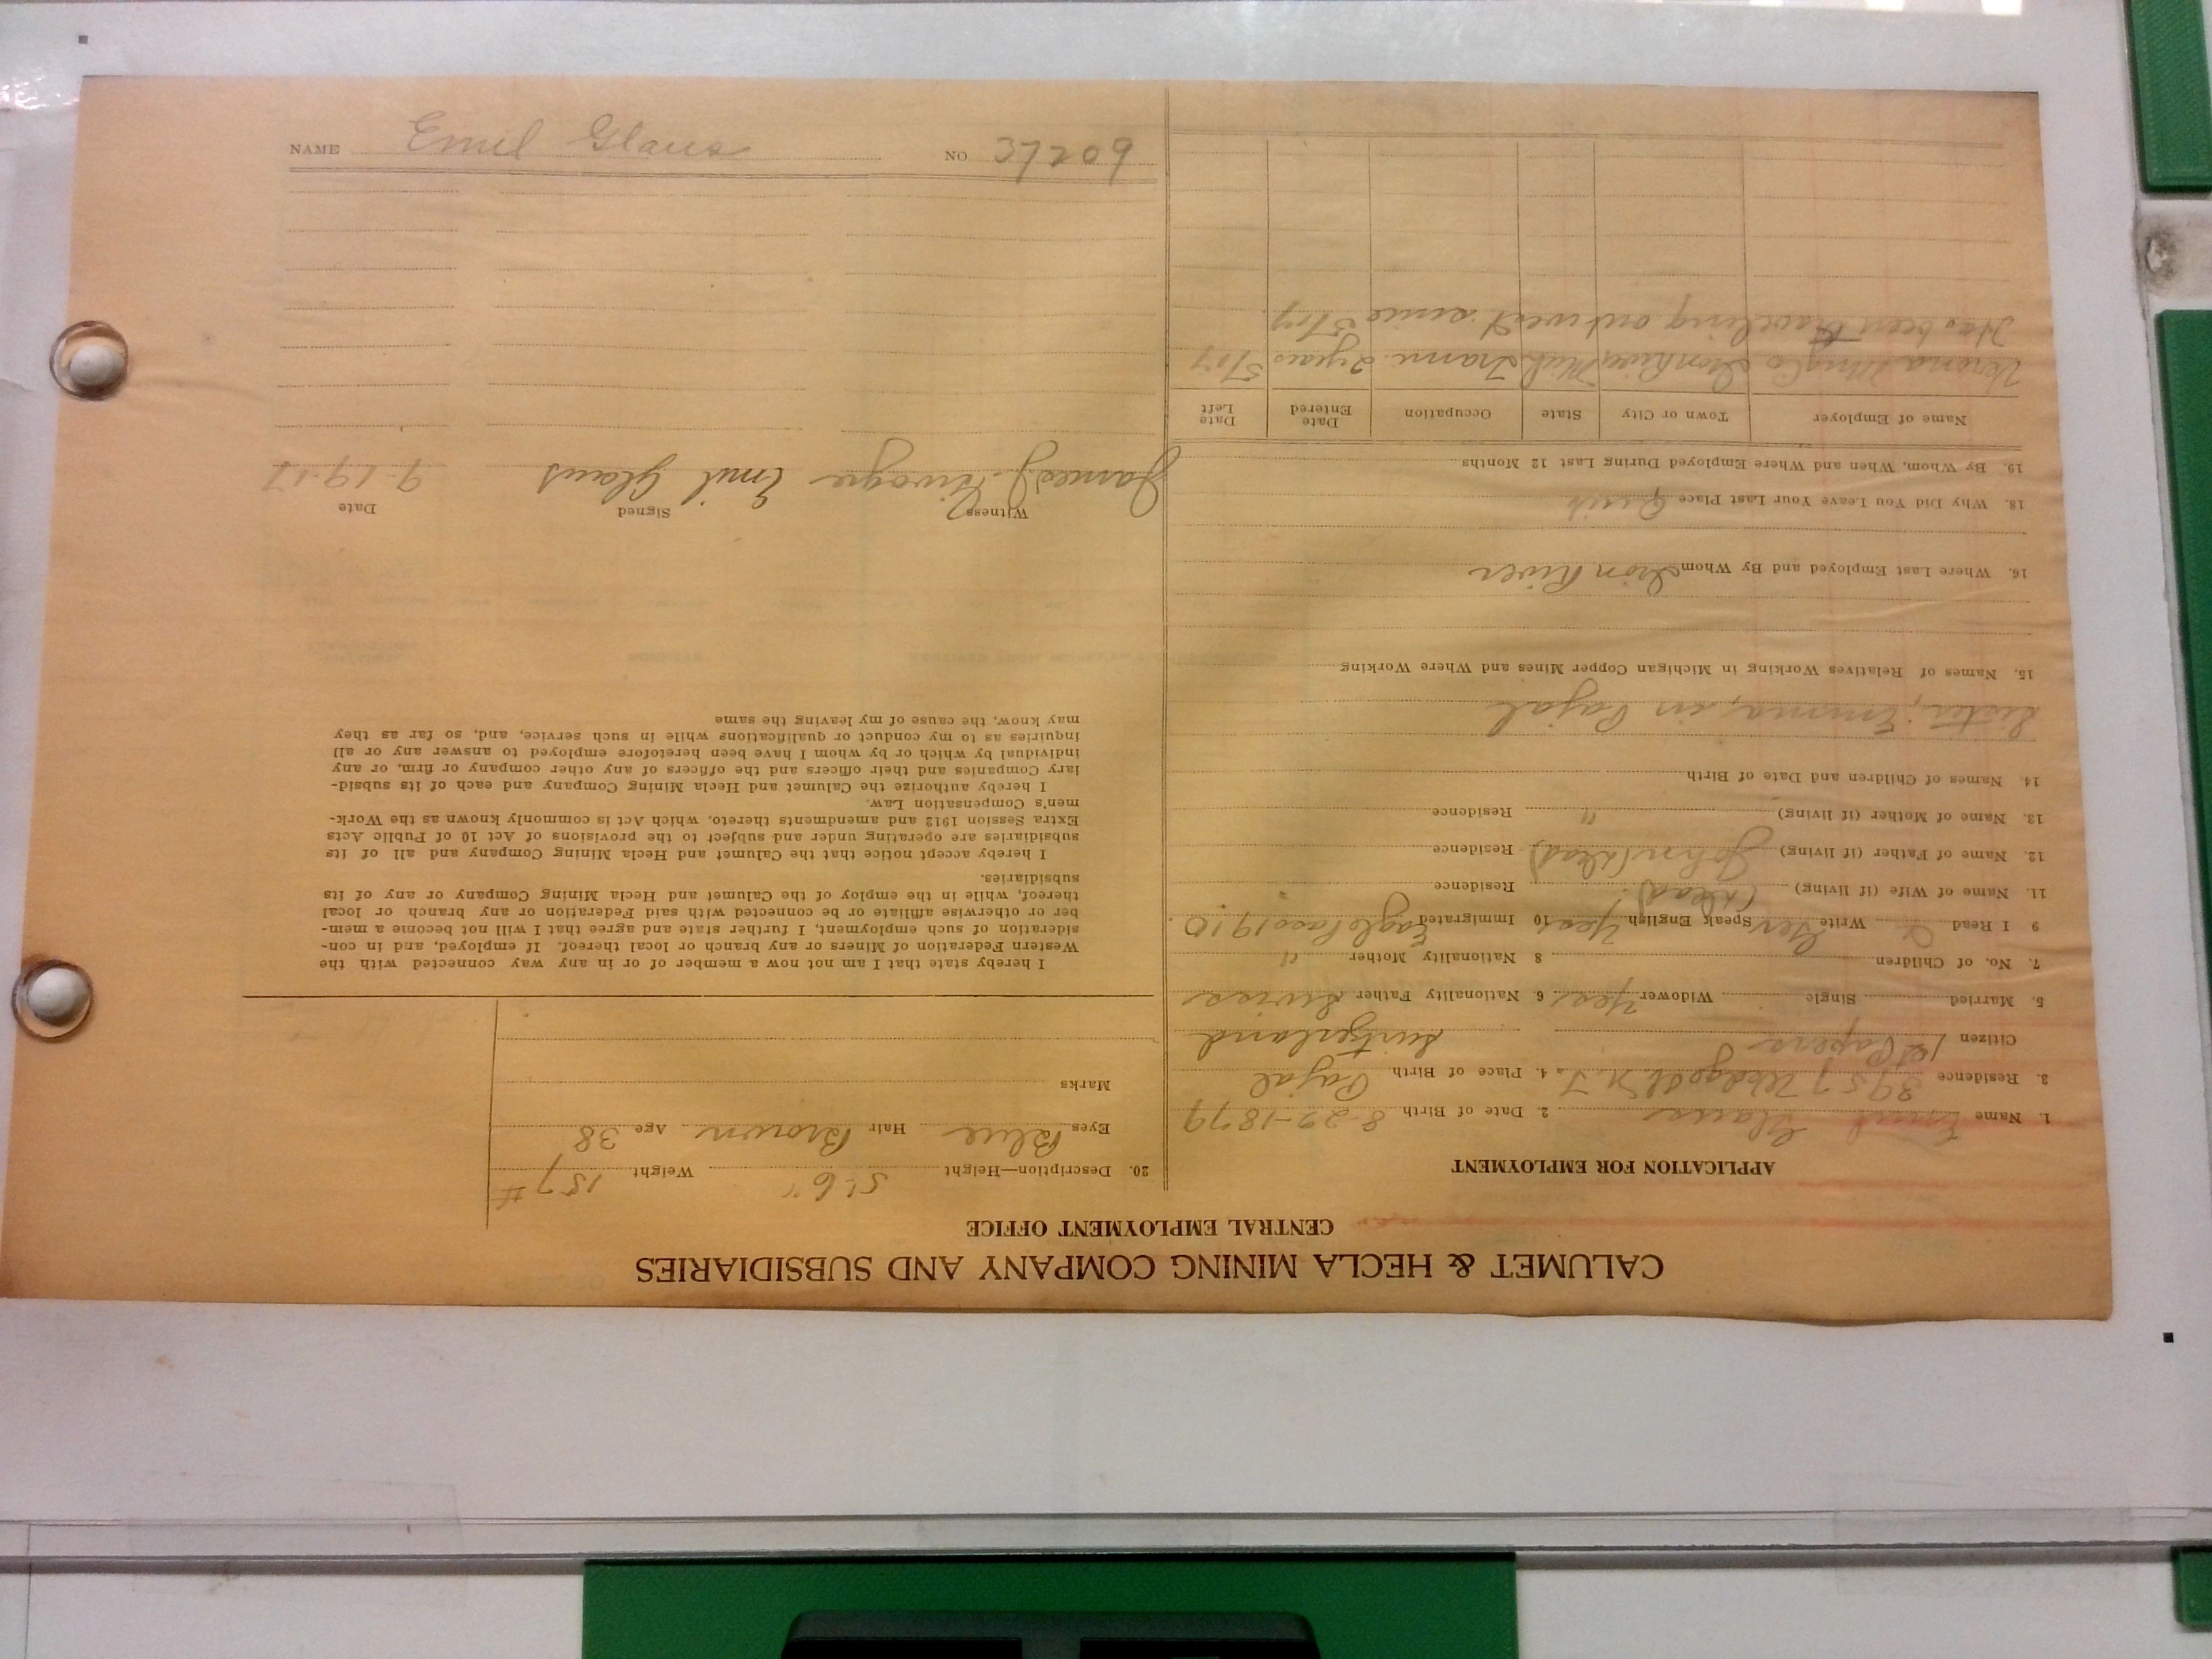 CALUMET & HECLA MINING COMPANY AND SUBSIDIARIES
CENTRAL EMPLOYMENT OFFICE
APPLICATION FOR EMPLOYMENT
1. Name Emil Glaus 2. Date of Birth 8-29-1879
3. Residence 3957 4. Place of Birth
Citizen 1st Papers Switzerland
5. Married Single Widower Yes 6 Nationality Father Swiss
7. No. of Children 8 Nationality Mother "
9 I Read Write Ger Speak English Yes 10 Immigrated Eagle Pass 1910
11. Name of Wife (if living) (dead) Residence
12. Name of Father (if living) John (dead) Residence
13. Name of Mother (if living) " Residence
14. Names of Children and Date of Birth
Sister, Emma, in
15. Names of Relatives Working in Michigan Copper Mines and Where Working
16. Where Last Employed and By Whom Iron River
18. Why Did You Leave Your Last Place Quit
19. By Whom, When and Where Employed During Last 12 Months
Name of Employer Town or City State Occupation Date Entered Date Left
Verona Mng Co Iron River Mich Tramr. 2 years 5/17
Has been traveling out west since 5/17.
20. Description—Height 5'-6" Weight 157#
Eyes Blue Hair Brown Age 38
Marks
I hereby state that I am not now a member of or in any way connected with the
Western Federation of Miners or any branch or local thereof. If employed, and in con-
sideration of such employment, I further state and agree that I will not become a mem-
ber or otherwise affiliate or be connected with said Federation or any branch or local
thereof, while in the employ of the Calumet and Hecla Mining Company or any of its
subsidiaries.
I hereby accept notice that the Calumet and Hecla Mining Company and all of its
subsidiaries are operating under and subject to the provisions of Act 10 of Public Acts
Extra Session 1912 and amendments thereto, which Act is commonly known as the Work-
men's Compensation Law.
I hereby authorize the Calumet and Hecla Mining Company and each of its subsid-
iary Companies and their officers and the officers of any other company or firm, or any
individual by which or by whom I have been heretofore employed to answer any or all
inquiries as to my conduct or qualifications while in such service, and, so far as they
may know, the cause of my leaving the same
Witness Signed Date
James J. Emil Glaus 9-19-17
NAME Emil Glaus NO 37209